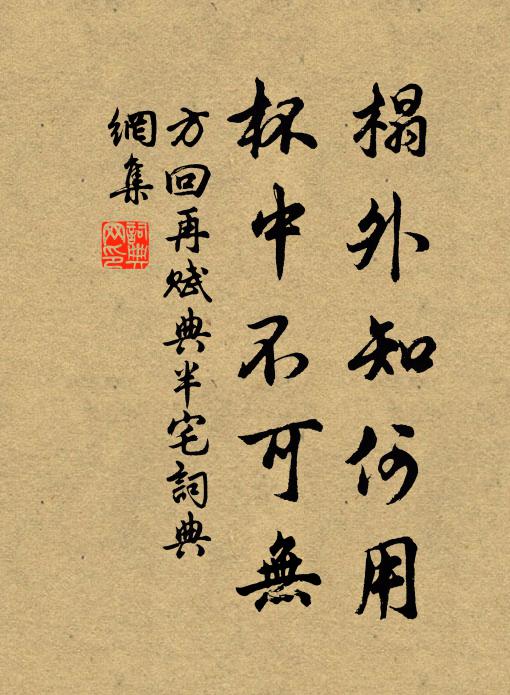 榻外知何用
杯中不可無
方回再赋典半宅詞典
網集
詞典网印